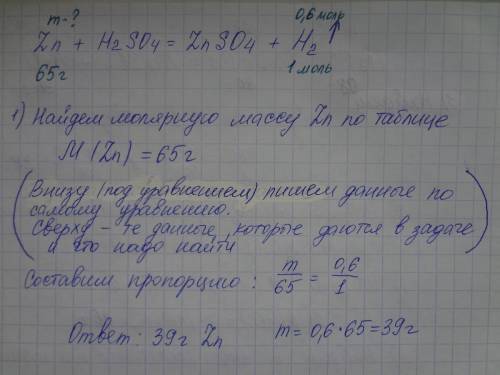 m-? 0,6 моль
Zn + H2SO4 = ZnSO4 + H2↑
65г 1 моль
1) Найдем молярную массу Zn по таблице
M (Zn) = 65г
(Внизу (под уравнением) пишем данные по
самому уравнению.
Сверху – те данные, которые даются в задаче
и что надо найти)
Составим пропорцию: m/65 = 0,6/1
Ответ: 39г Zn m = 0,6·65=39г